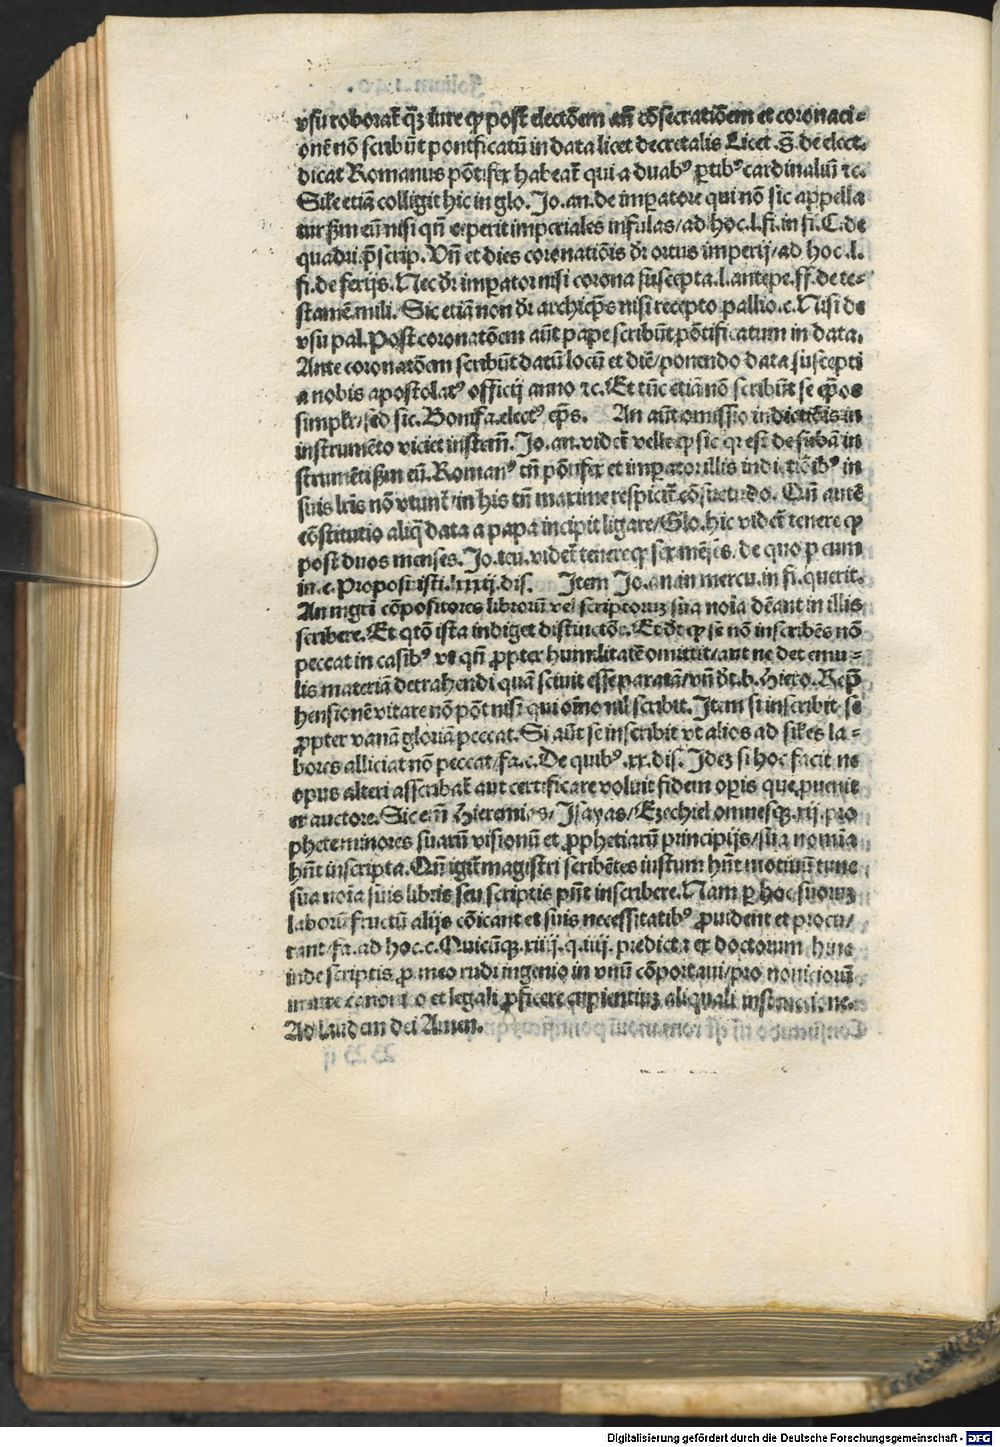 vsu roborat᷑ qꝫ iure ꝙ post᷑ electōem an̄ cōsecratiōem et coronaci⸗
onē nō scribūt pontificatū in data licet decretalis Licet .§. de elect.
dicat Romanus pōtifex habeat᷑ qui a duabꝰ ꝑtibꝰ cardinaliū ⁊c.
Sil̓e etiā colligit hic in glo. Jo. an. de imꝑatore qui nō sic appella
tur ẜm eū nisi qn̄ ceperit imperiales infulas/ad hoc .l. fi. in fi. C. de
quadri. p̄scrip. Vn̄ et dies coronatiōis dr̄ ortus imperij/ad hoc .l.
fi. de ferijs. Nec dr̄ imꝑator nisi corona suscepta .l. antepe. ff. de te⸗
stamē. mili. Sic etiā non dr̄ archiep̄s nisi recepto pallio .c. Nisi de
vsu pal. Post coronatōem aūt pape scribūt pōtificatum in data.
Ante coronatōem scribūt datū locū et diē/ponendo data suscepti
a nobis apostolatꝰ officij anno ⁊c. Et tūc etiā nō scribūt se ep̄os
simplr̄/sed sic. Bonifa. electꝰ ep̄s. An aūt omissio indictiōis in
instrumēto viciet instrm̄. Jo. an. videt᷑ velle ꝙ sic qr̄ est de subā in
strumēti ẜm eū. Romanꝰ tn̄ pōtifex et imꝑator illis indictiōibꝰ in
suis lr̄is nō vtunt᷑/in his tn̄ maxime respicit᷑ cōsuetudo. Qn̄ autē
cōstitutio aliq̄ data a papa incipit ligare/Glo. hic videt᷑ tenere ꝙ
post duos menses. Jo. teu. videt᷑ tenere ꝙ sex mēses. de quo ꝑ eum
in .c. Proposuisti. lxxxij. dis. Item Jo. an. in mercu. in fi. querit.
An mgr̄i cōpositores librorū vel scriptorum sua noīa dēant in illis
scribere. Et q̄tō ista indiget distinctōe. Et dr̄ ꝙ se nō inscribēs nō
peccat in casibꝰ vt qn̄ ꝓpter humilitatē omittit/aut ne det emu⸗
lis materiā detrahendi quā sciuit esse paratā/vn̄ dīt b. Hiero. Rep̄
hensionē vitare nō pōt nisi qui oīno nil scribit. Item si inscribit se
ꝓpter vanā gloriā peccat. Si aūt se inscribit vt alios ad sil̓es la⸗
bores alliciat nō peccat/fa. c. De quibꝰ .xx. dis. Idem si hoc facit ne
opus alteri asscribat᷑ aut certificare voluit fidem oꝑis que ꝓuenit
ex auctore. Sic em̄ Hieremias/Isayas/Ezechiel omnesqꝫ .xij. pro
phete minores suarū visionū et ꝓphetiarū principijs/sua nomīa
hn̄t inscripta. Qn̄ igit᷑ magistri scribētes iustum hn̄t motiuū tunc
sua noīa suis libris seu scriptis pn̄t inscribere. Nam ꝑ hoc suoruꝫ
laborū fructū alijs cōicant et suis necessitatibꝰ ꝓuident et procu/
rant/fa. ad hoc .c. Quicūqꝫ .xiiij. q. iiij. predicta ex doctorum hinc
inde scriptis ꝓ meo rudi ingenio in vnū cōportaui/pro nouiciorū
in iure canonico et legali ꝓficere cupientiuꝫ aliquali instructione.
Ad laudem dei Amen.
Digitalisierung gefördert durch die Deutsche Forschungsgemeinschaft - DFG